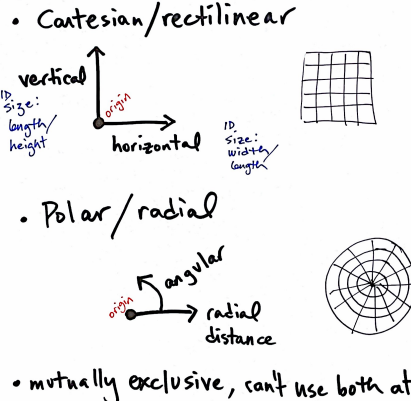 • Cartesian/rectilinear
vertical
1D
size:
length/
height
origin
horizontal
1D
size:
width/
length
• Polar/radial
angular
origin
radial
distance
• mutually exclusive, can't use both at